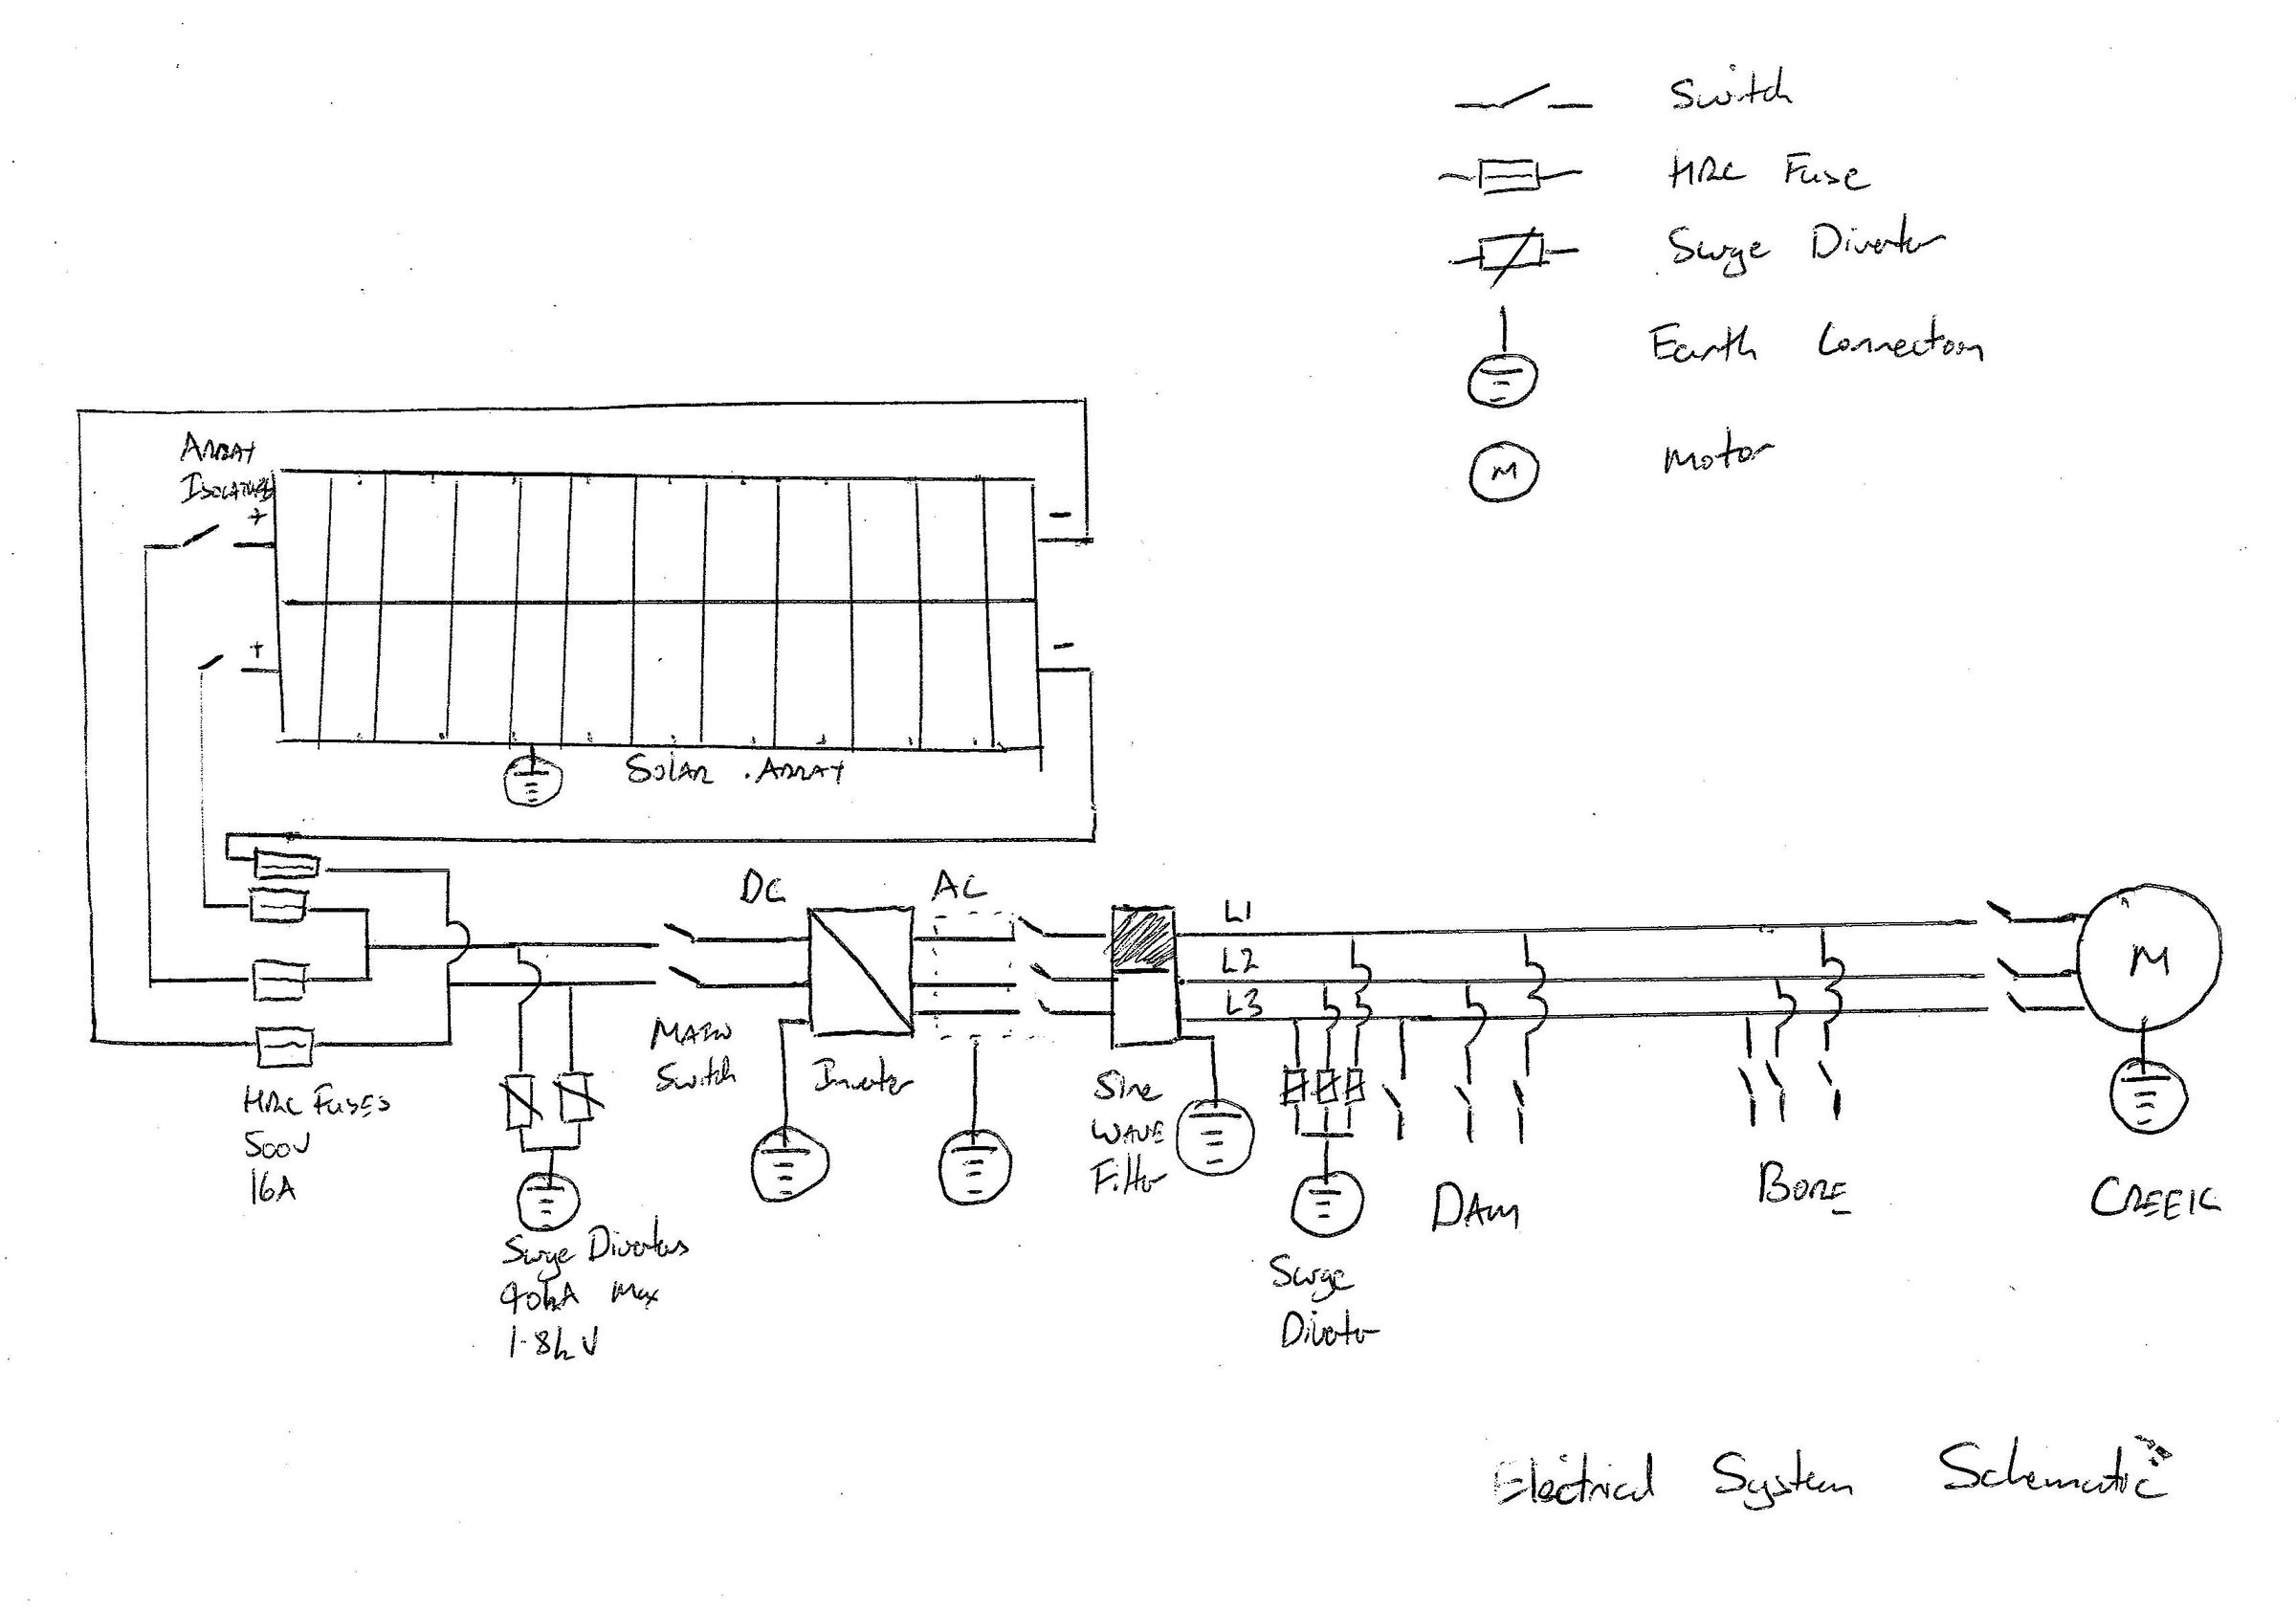 Switch
HRC Fuse
Surge Diverter
Earth Connection
M Motor
ARRAY
ISOLATORS
+ -
+ -
SOLAR ARRAY
DC AC
L1
L2
L3
M
MAIN
Switch
Inverter
HRC FUSES
500V
16A
Surge Diverters
40kA Max
1.8kV
Sine
WAVE
Filter
Surge
Diverter
DAM
BORE
CREEK
Electrical System Schematic